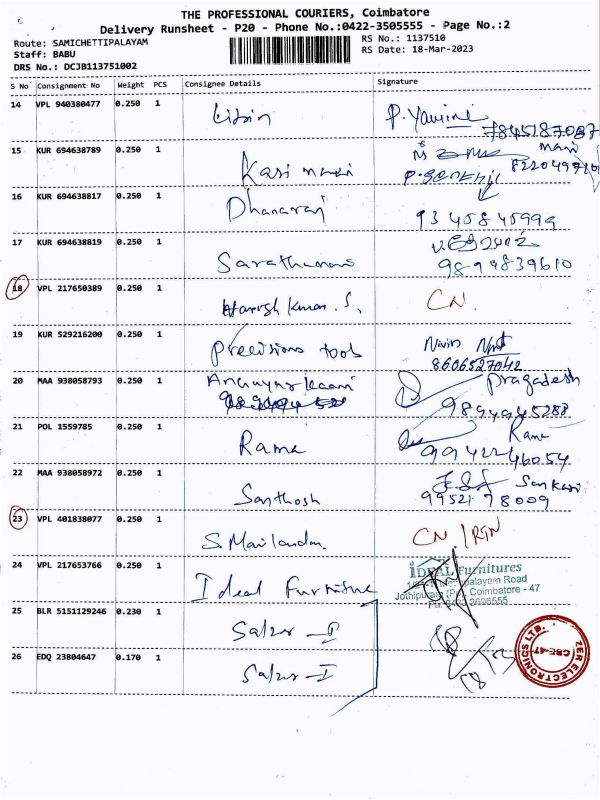 THE PROFESSIONAL COURIERS, Coimbatore
Delivery Runsheet - P20 - Phone No.:0422-3505555 - Page No.:2
Route: SAMICHETTIPALAYAM
Staff: BABU
DRS No.: DCJB113751002
RS No.: 1137510
RS Date: 18-Mar-2023
S No Consignment No Weight PCS Consignee Details Signature
14 VPL 940380477 0.250 1 P. Yamini
7845187087
15 KUR 694638789 0.250 1 Mani
8220499710
16 KUR 694638817 0.250 1 Dhanaraj
9345845999
17 KUR 694638819 0.250 1
9894839610
18 VPL 217650389 0.250 1 Harish Kumar. S. CN
19 KUR 529216200 0.250 1 Precisions tools Navin
8606527042
20 MAA 938058793 0.250 1 Pragadesh
9894945288
21 POL 1559785 0.250 1 Rama Rama
9942246054
22 MAA 938058972 0.250 1 Santhosh Sankari
9952178009
23 VPL 401838077 0.250 1 CN/RTN
24 VPL 217653766 0.250 1 Ideal Furniture
IDEAL Furnitures
Coimbatore - 47
25 BLR 5151129246 0.230 1
26 EDQ 23804647 0.170 1
18/3
ZER ELECTRONICS LTD.
CBE-47